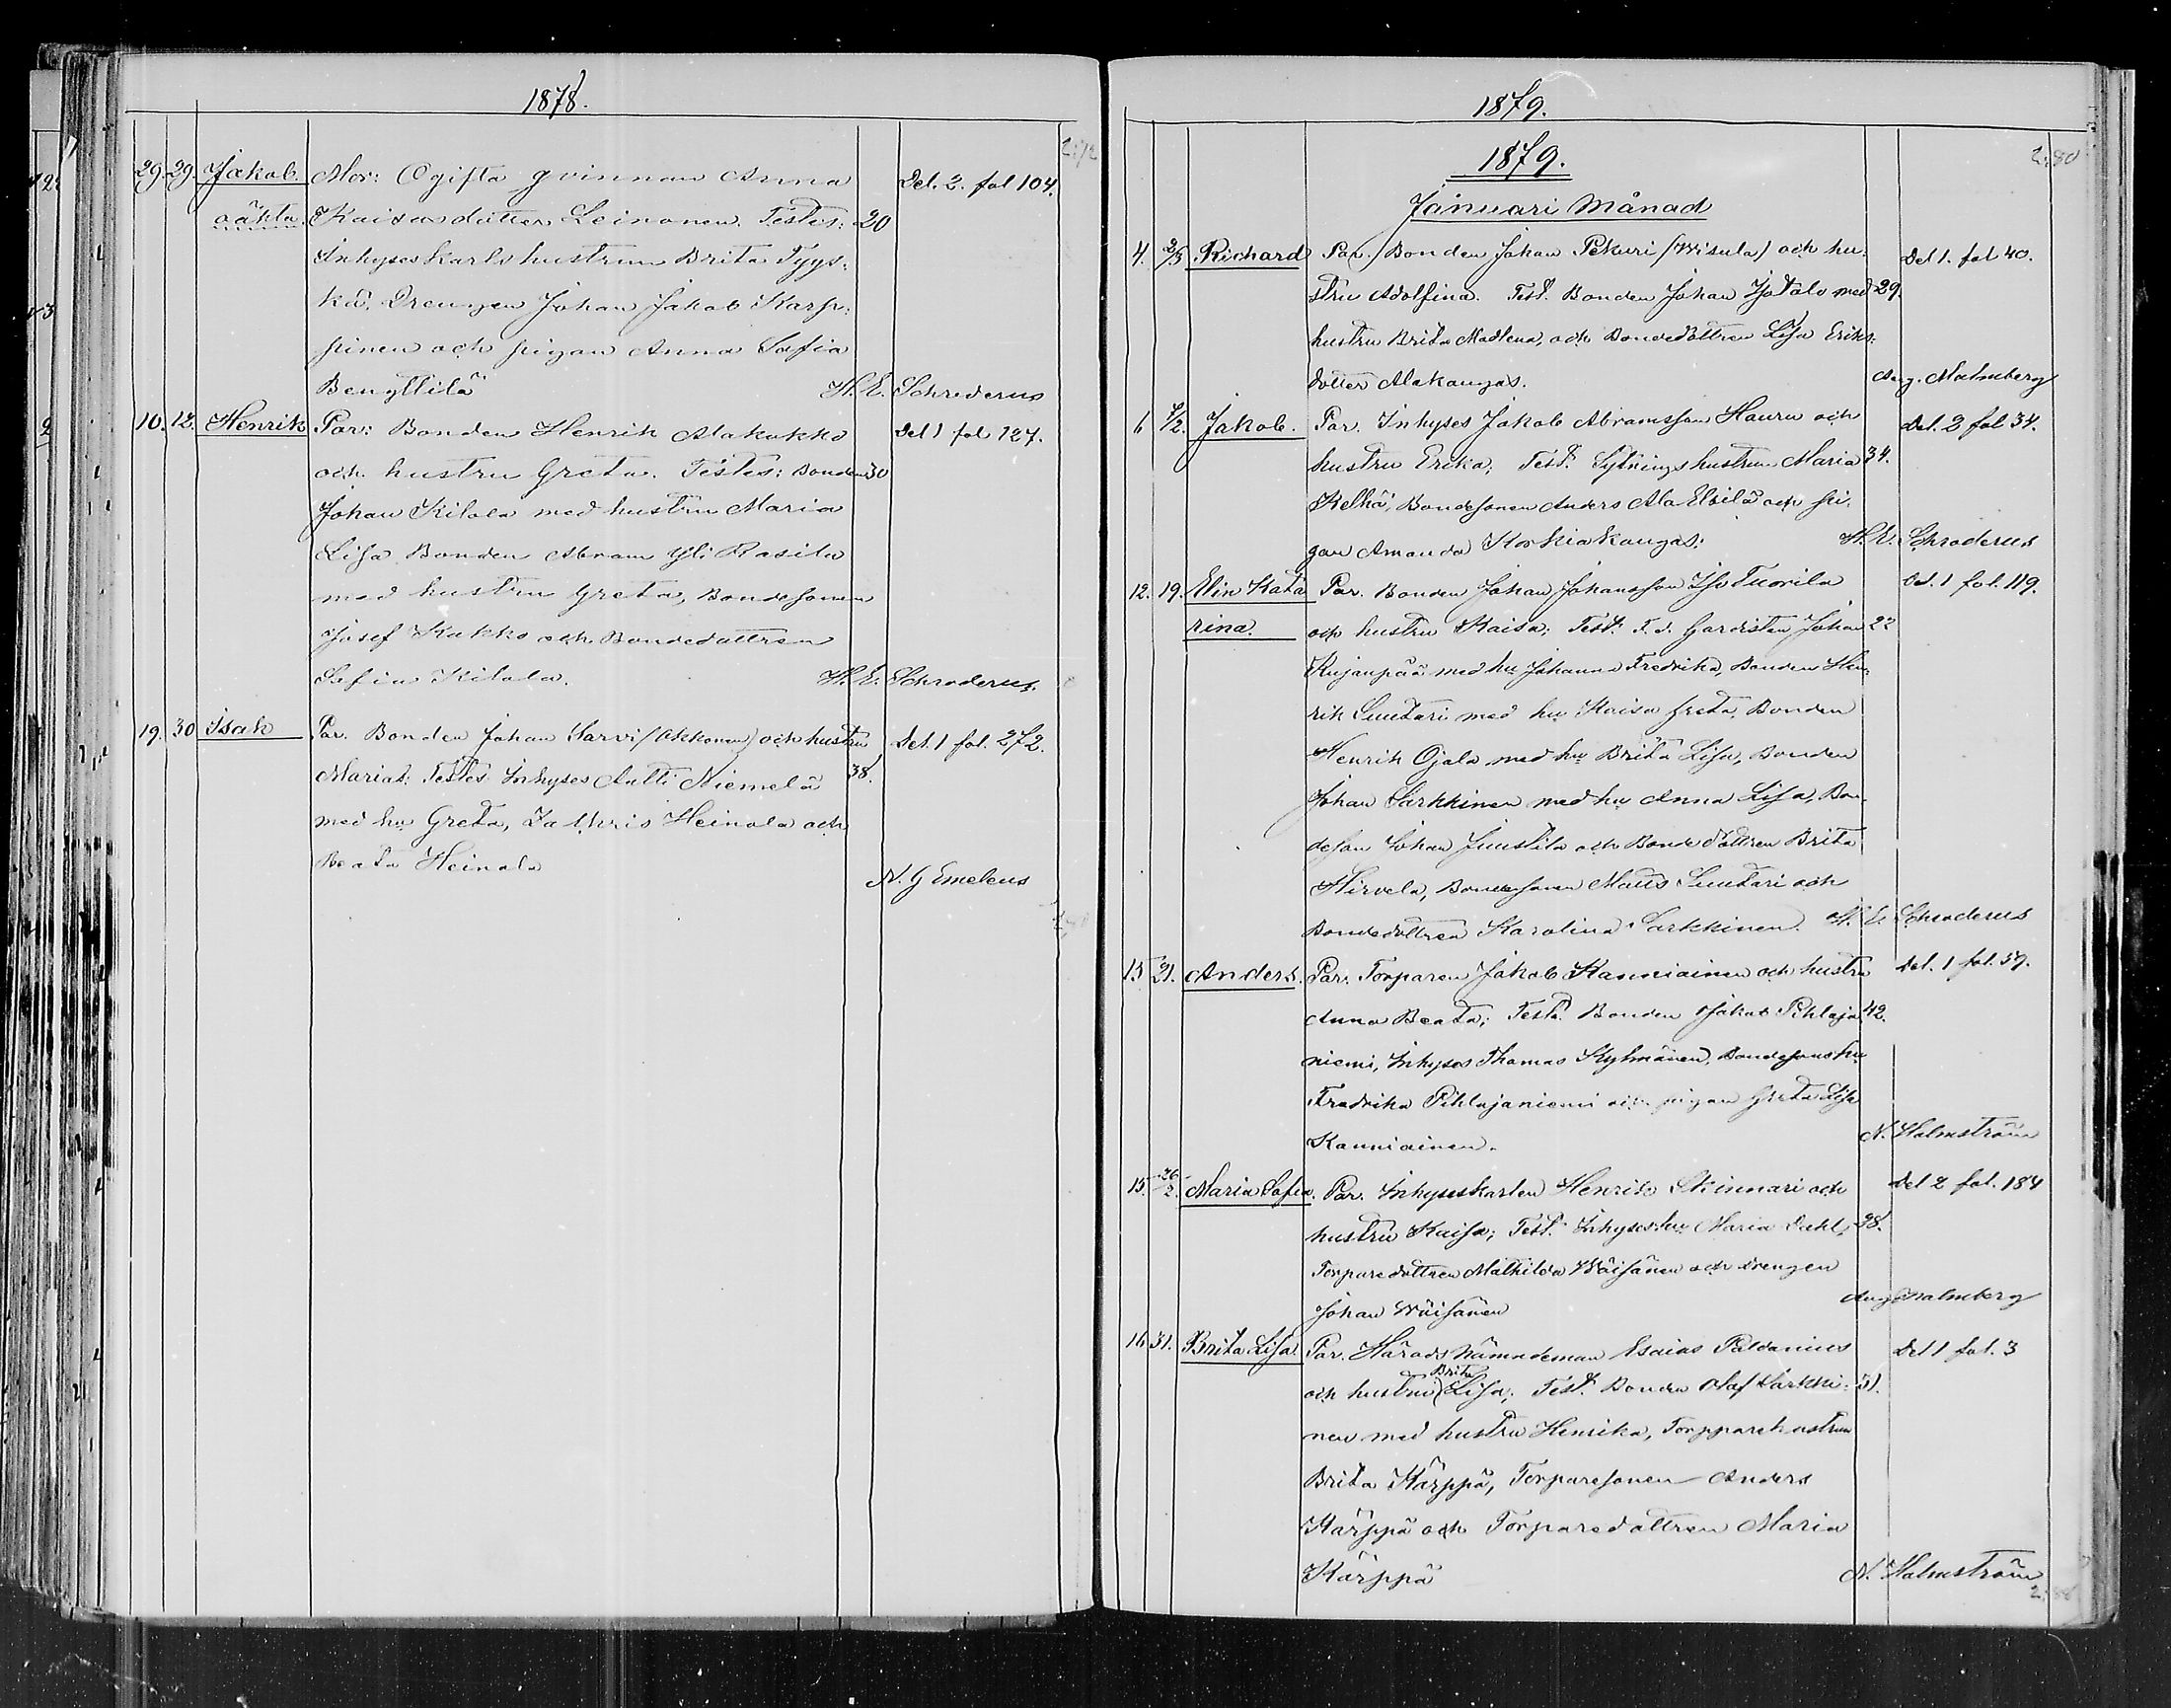 1878.
29. 29. Jakob Mor: Ogifta qvinnan Anna Del. 2. fol 104.
oäkta. Kaisa dotter Leinonen. Testes: 20
Inhyses Karls hustrun Brita Tyys-
kä, Drengen Johan Jakob Karp-
pinen och pigan Anna Sofia
Bengttilä H. E. Schroderus
10. 12. Henrik Par: Bonden Henrik Alakukko Del 1 fol 127.
och hustru Greta. Testes: Bonden 30
Johan Kilola med hustru Maria
Lisa Bonden Abram Yli Rasila
med hustru Greta, Bondesonen
Josef Kukko och Bondedottren
Sofia Kilola. H. E. Schroderus.
19. 30 Isak Par. Bonden Johan Sarvi (Okkonen) och hustru Del. 1 fol. 272.
Maria: Testes Inhyses Antti Niemelä 38.
med hu Greta, Zachris Heinola och
Beata Heinola
N. G Emeleus
1879.
1879.
2:80
Januari Månad
4. 2/3 Richard Par. Bonden Johan Pekuri (Wisula) och hu- Del 1. fol 40.
stru Adolfina. Test. Bonden Johan Isotalo med 29.
hustru Brita Madlena, och Bondedottren Lisa Eriks-
dotter Alakangas. Aug. Malmberg
6 2/2. Jakob. Par. Inhyses Jakob Abramsson Hauru och Del. 2 fol 34.
hustru Erika; Test. Sytningshustrun Maria 34.
Kelhä, Bondesonen Anders Ala Elsilä och pi-
gan Amanda Korkiakangas: H. E. Schroderus
12. 19. Elin Kata Par. Bonden Johan Johansson Iso Tuorila Del. 1 fol. 119.
rina. och hustru Kaisa; Test. F. d. Gardisten Johan 22
Kujanpää med hu Johanna Fredrika, Bonden Hen-
rik Suutari med hu Kaisa Greta, Bonden
Henrik Ojala med hu Brita Lisa, Bonden
Johan Sarkkinen med hu Anna Lisa, Bon-
deson Johan Juustila och Bondedottren Brita
Hirvela, Bondesonen Matts Suutari och
Bondedottren Karolina Sarkkinen. H. E. Schroderus
15 21. Anders. Par. Torparen Jakob Kanniainen och hustru Del. 1 fol. 59.
Anna Beata; Test. Bonden Jakob Pihlaja 42.
niemi, Inhyses Thomas Kylmänen, Bondesons hu
Fredrika Pihlajaniemi och pigan Greta Lisa
Kanniainen. N. Holmström
15. 26/2. Maria Sofia. Par. Inhyseskarlen Henrik Skinnari och Del 2 fol. 184
hustru Kaisa; Test. Inhyses hu Maria Dahl, 38.
Torparedottren Mathilda Wäisänen och drengen
Johan Wäisänen Aug Malmberg
16 31. Brita Lisa Par. Härads Nämndeman Esaias Paldanius Del 1 fol. 3
Brita
och hustru Lisa; Test. Bonden Olaf Sarkki- 31.
nen med hustru Henrika, Torpparehustrun
Brita Kärppä, Torparesonen Anders
Kärppä och Torparedottren Maria
Kärppä N. Holmström